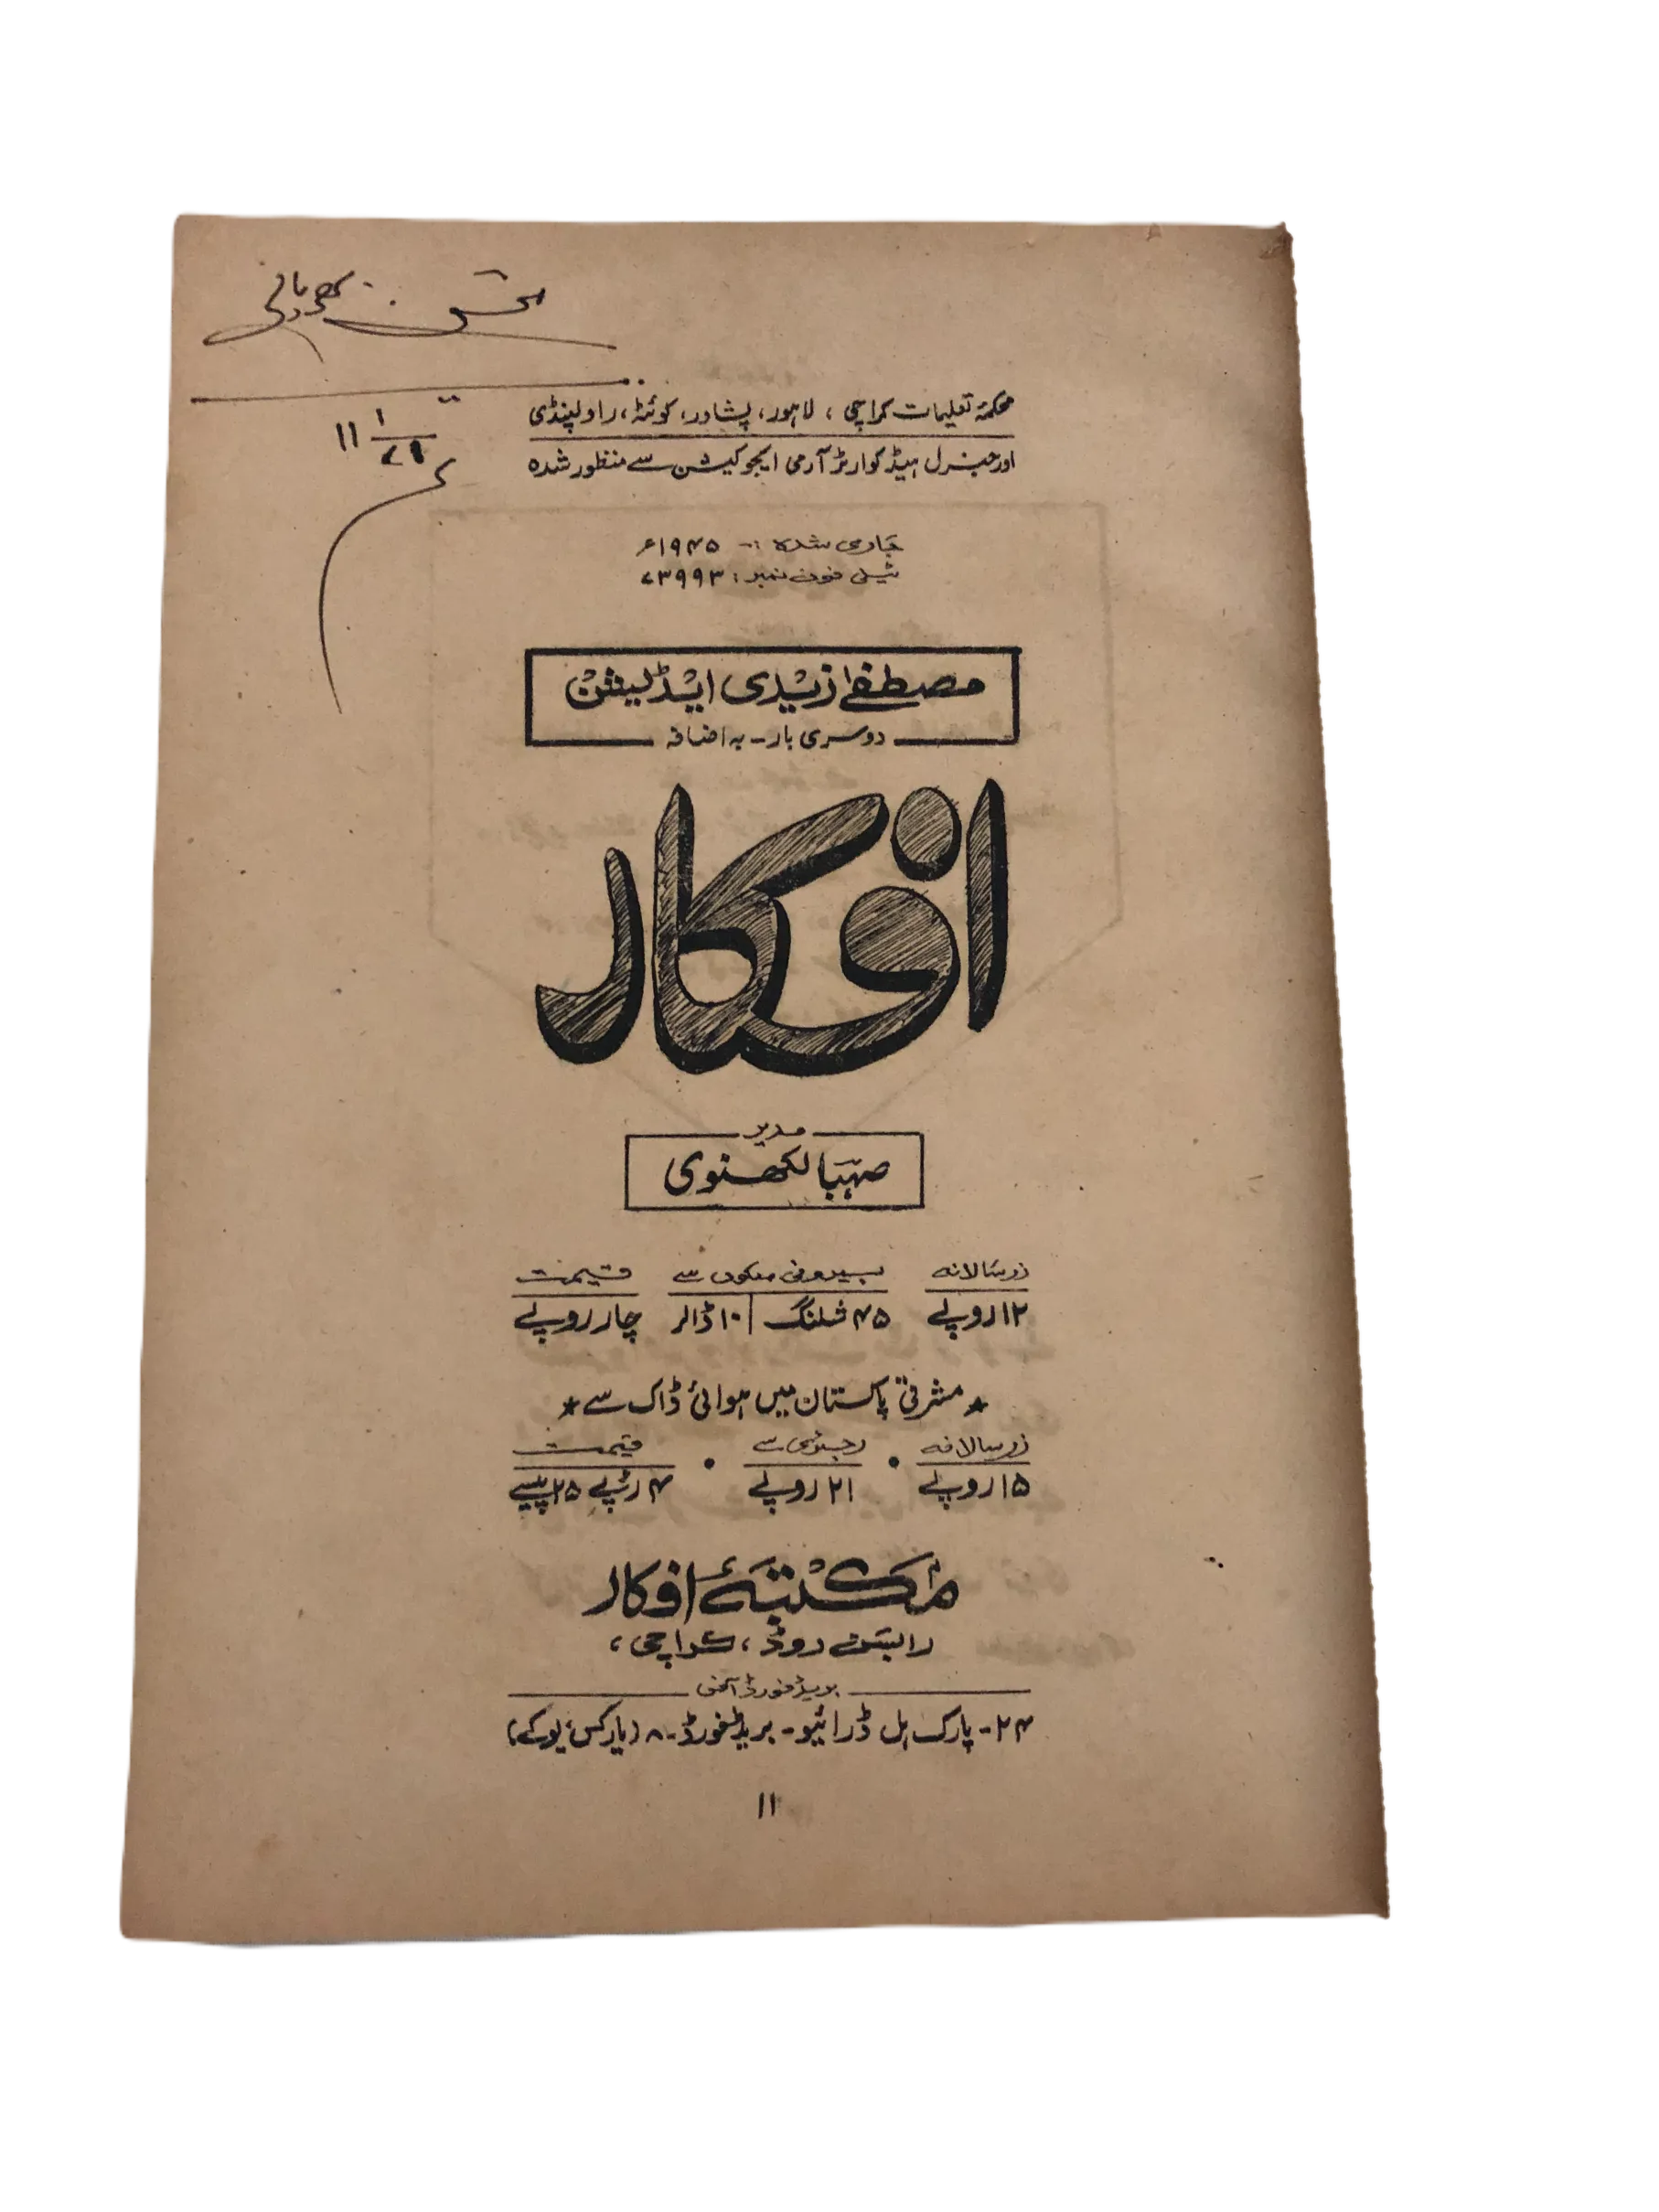 بھوپالی
۱۱
محکمۂ تعلیمات کراچی، لاہور، پشاور، کوئٹہ، راولپنڈی
اور جنرل ہیڈ کوارٹر آرمی ایجوکیشن سے منظور شدہ
جاری شدہ :- ۱۹۴۵ء
ٹیلی فون نمبر: ۷۳۹۹۳
مصطفےٰ زیدی ایڈیشن
دوسری بار - بہ اضافہ
افکار
مدیر
صہبا لکھنوی
زر سالانہ بیرونی ملکوں سے قیمت
۱۲ روپلے ۴۵ شلنگ | ۱۰ ڈالر چار روپلے
★ مشرقی پاکستان میں ہوائی ڈاک سے ★
زر سالانہ رجسٹری سے قیمت
۱۵ روپلے • ۲۱ روپلے • ۴ رپے ۲۵ پیسے
مکتبۂ افکار
رابسن روڈ، کراچی،
بریڈفورڈ آفس
۲۴- پارک ہل ڈرائیو - بریڈفورڈ - ۸ (یارکس، یو کے)
۱۱